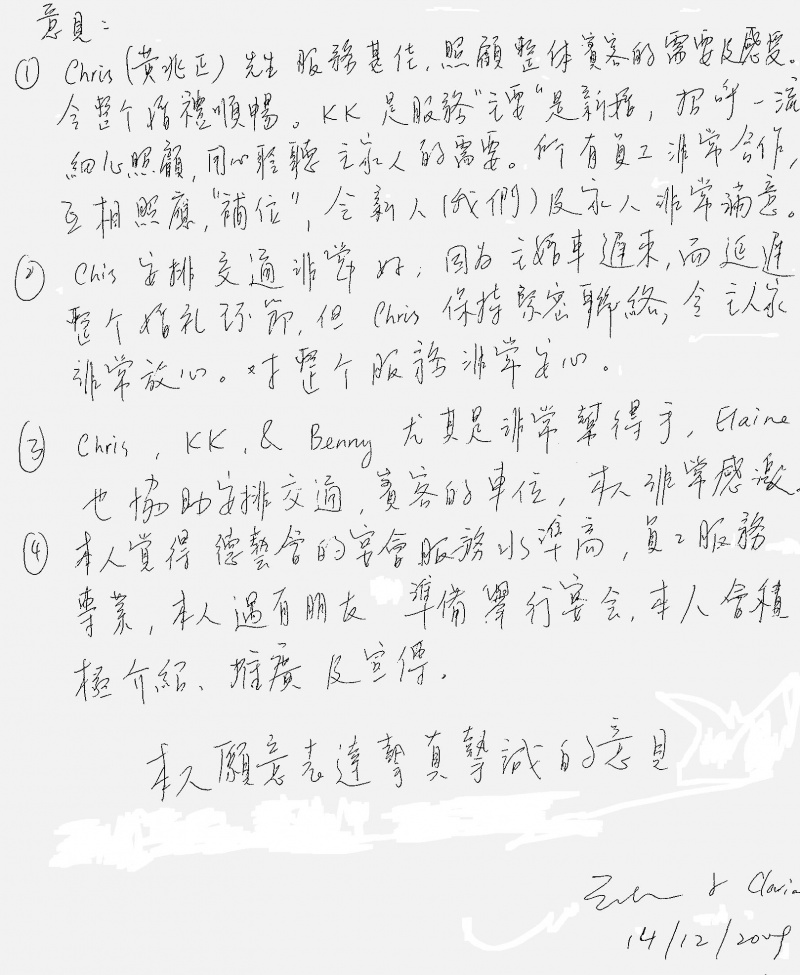 意見：
① Chris (黃兆正) 先生服務甚佳，照顧整体賓客的需要及感受。
令整个婚禮順暢。KK 是服務"主要"是新措，招呼一流
細心照顧，同心聆聽主家人的需要。所有員工非常合作，
互相照應，"補位"，令新人(我們)及家人非常滿意。
② Chis 安排交通非常好，因为主婚車遲來，而延遲
整个婚礼环節，但 Chris 保持緊密聯絡，令主人家
非常放心。对整个服務非常安心。
③ Chris, KK, & Benny 尤其是非常幫得手，Elaine
也協助安排交通，賓客的車位，本人非常感激。
④ 本人覺得德藝會的宴會服務水準高，員工服務
專業，本人遇有朋友準備舉行宴会，本人會積
極介紹、推廣及宣傳。
本人願意表達摯真摯誠的意見
& Clavia
14/12/2009